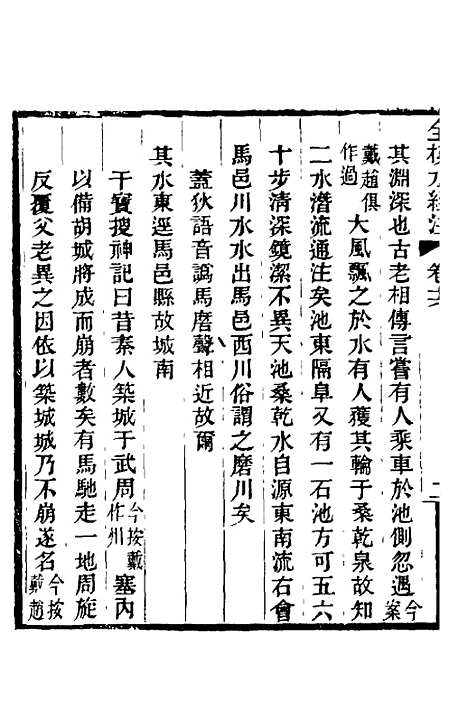 全校水經注 卷十三 二
其淵深也古老相傳言嘗有人乘車於池側忽遇今案
戴趙俱作過大風飄之於水有人獲其輪于桑乾泉故知
二水潛流通注矣池東隔阜又有一石池方可五六
十步清深鏡潔不異天池桑乾水自源東南流右會
馬邑川水水出馬邑西川俗謂之磨川矣
蓋狄語音譌馬磨聲相近故爾
其水東逕馬邑縣故城南
干寶搜神記曰昔秦人築城于武周今按戴作州塞內
以備胡城將成而崩者數矣有馬馳走一地周旋
反覆父老異之因依以築城城乃不崩遂名今按戴趙